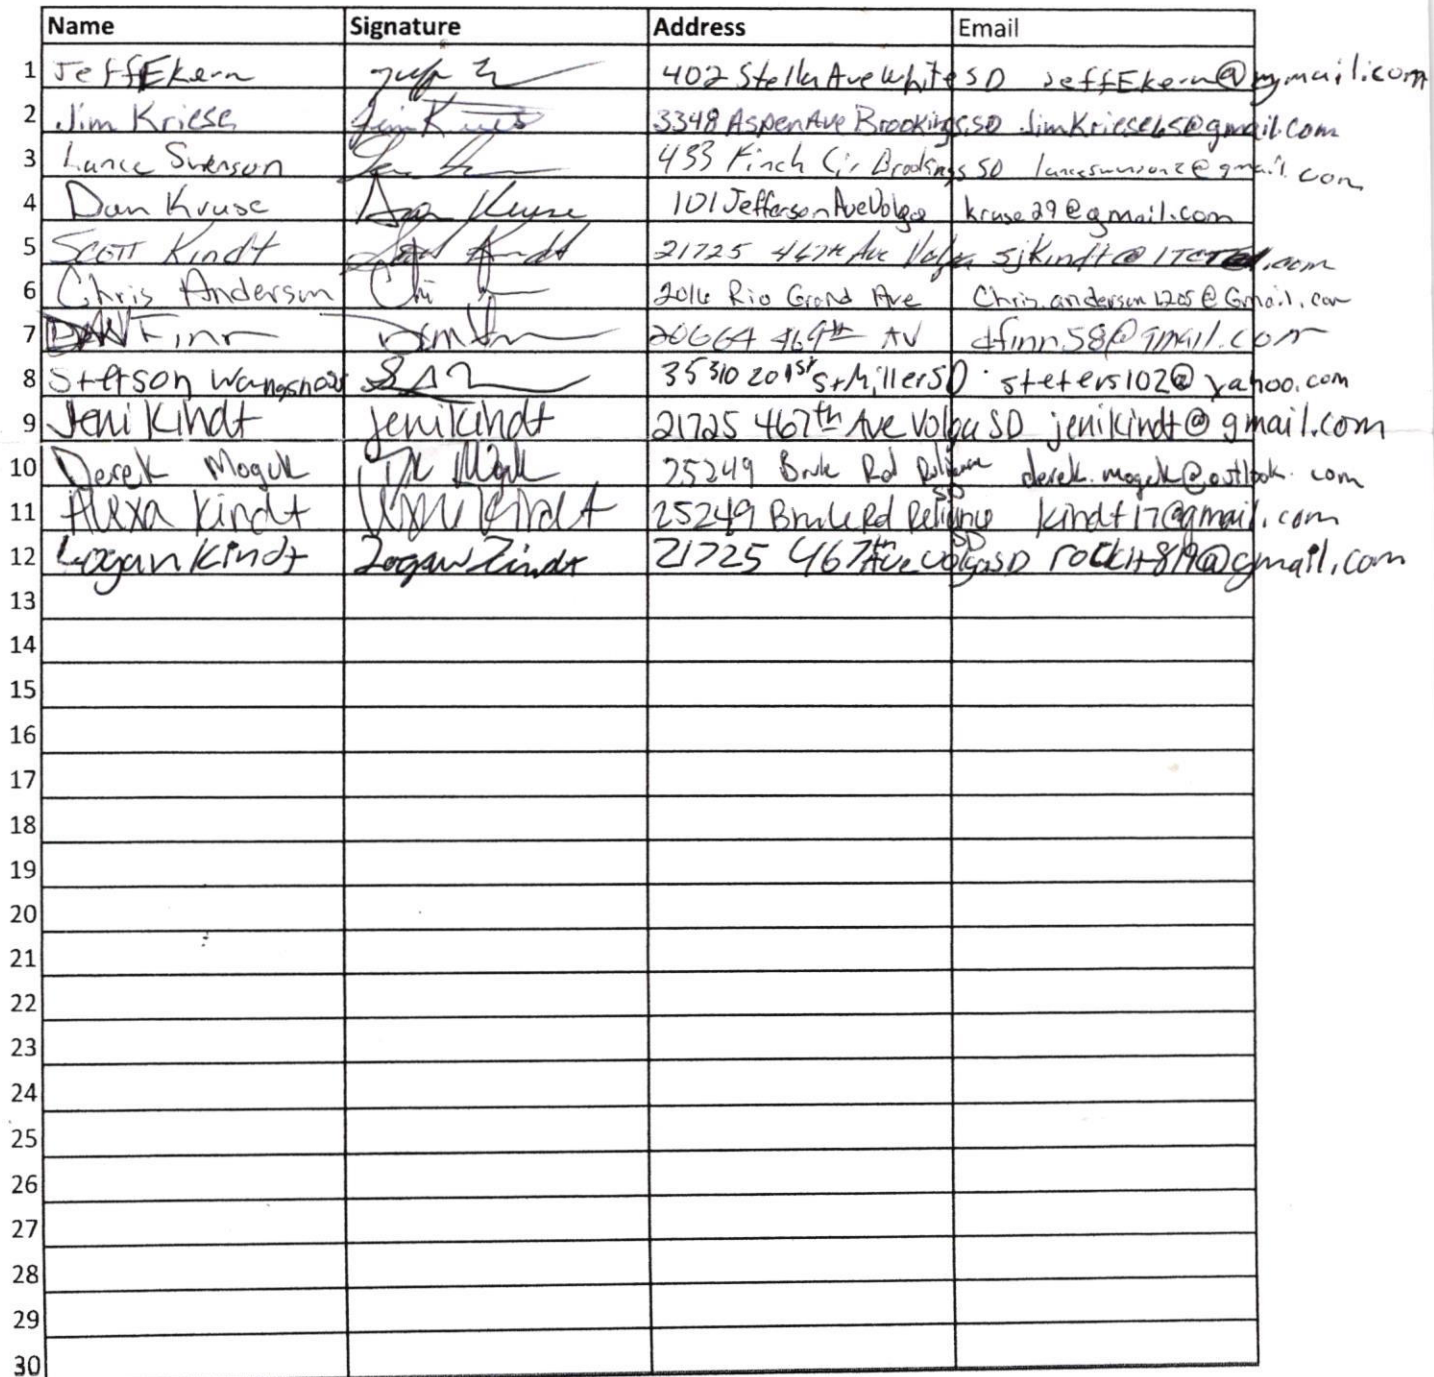 Name Signature Address Email
1 Jeff Ekern 402 Stella Ave White SD JeffEkern@mymail.com
2 Jim Kriese Jim Kriese 3348 Aspen Ave Brookings, SD JimKriese65@gmail.com
3 Lance Svenson 433 Finch Cir Brookings SD
4 Dan Kruse Dan Kruse 101 Jefferson Ave Volga kruse29@gmail.com
5 Scott Kindt Scott Kindt 21725 467th Ave Volga sjkindt@ITCTEL.com
6 Chris Anderson 2016 Rio Grand Ave Chris.anderson1205@Gmail.com
7 Dan Finn 20664 469th AV dfinn58@gmail.com
8 Stetson 35310 201st St Miller SD steters102@yahoo.com
9 Jeni Kindt jeni kindt 21725 467th Ave Volga SD jenikindt@gmail.com
10 Derek Moguk 25249 Brule Rd Reliance SD derek.moguk@outlook.com
11 Alexa Kindt Alexa Kindt 25249 Brule Rd Reliance SD kindt17@gmail.com
12 Logan Kindt Logan Kindt 21725 467th Ave Volga SD rockit819@gmail.com
13
14
15
16
17
18
19
20
21
22
23
24
25
26
27
28
29
30